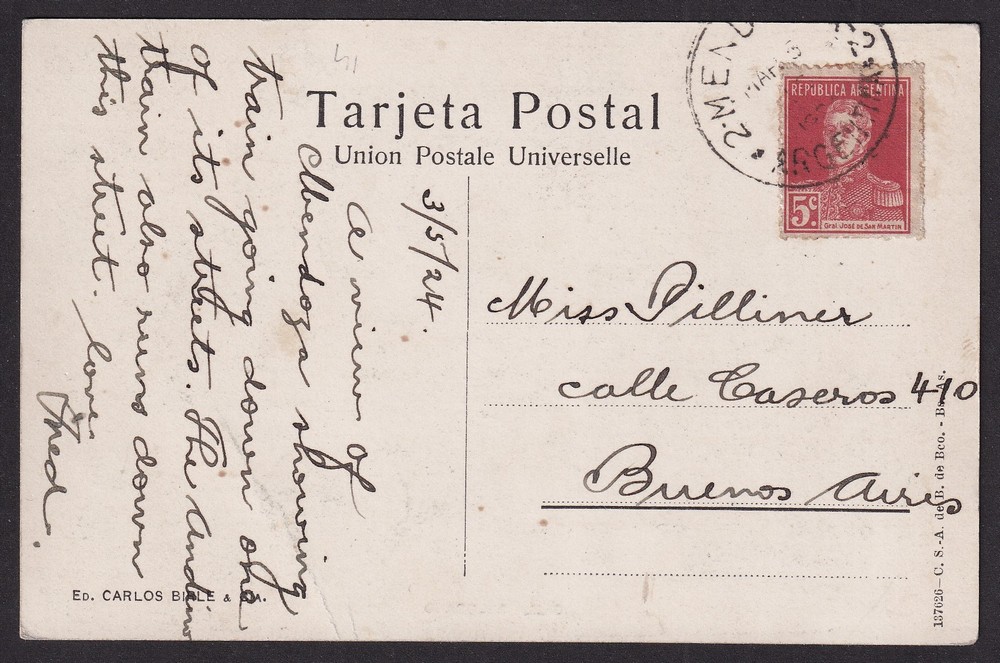 41
Tarjeta Postal
Union Postale Universelle
3/5/24.
A view of
Mendoza showing
train going down one
of its streets. The Andino
train also runs down
this street. Love
Fred.
2 MENDOZA
MAR
ARGENTINA
REPÚBLICA ARGENTINA
5c.
Gral. JOSÉ DE SAN MARTIN
Miss Pilliner
calle Caseros 410
Buenos Aires
ED. CARLOS BIALE & CIA.
137626—C. S.-A. de B. de Bco. - Bs. As.